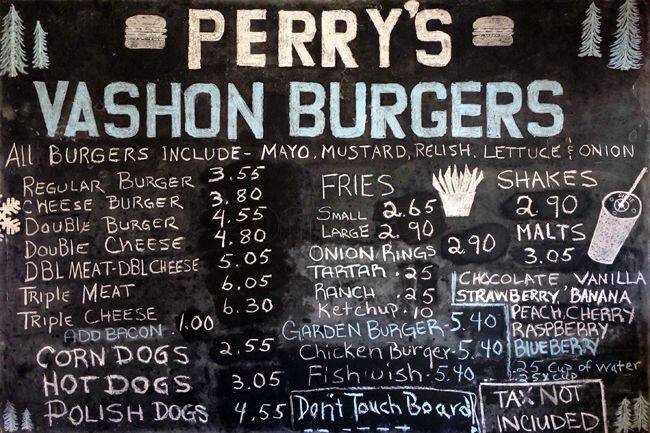 PERRY'S
VASHON BURGERS
ALL BURGERS INCLUDE - MAYO, MUSTARD, RELISH, LETTUCE & ONION
REGULAR BURGER 3.55
CHEESE BURGER 3.80
DOUBLE BURGER 4.55
DOUBLE CHEESE 4.80
DBL MEAT-DBL CHEESE 5.05
TRIPLE MEAT 6.05
TRIPLE CHEESE 6.30
ADD BACON 1.00
CORN DOGS 2.55
HOT DOGS 3.05
POLISH DOGS 4.55
FRIES
SMALL 2.65
LARGE 2.90
ONION RINGS 2.90
TARTAR .25
RANCH .25
Ketchup .10
GARDEN BURGER - 5.40
Chicken Burger - 5.40
Fishwish . 5.40
Don't Touch Board
SHAKES
2.90
MALTS
3.05
CHOCOLATE VANILLA
STRAWBERRY, BANANA
PEACH, CHERRY
RASPBERRY
BLUEBERRY
.25 Cup of water
TAX NOT
INCLUDED